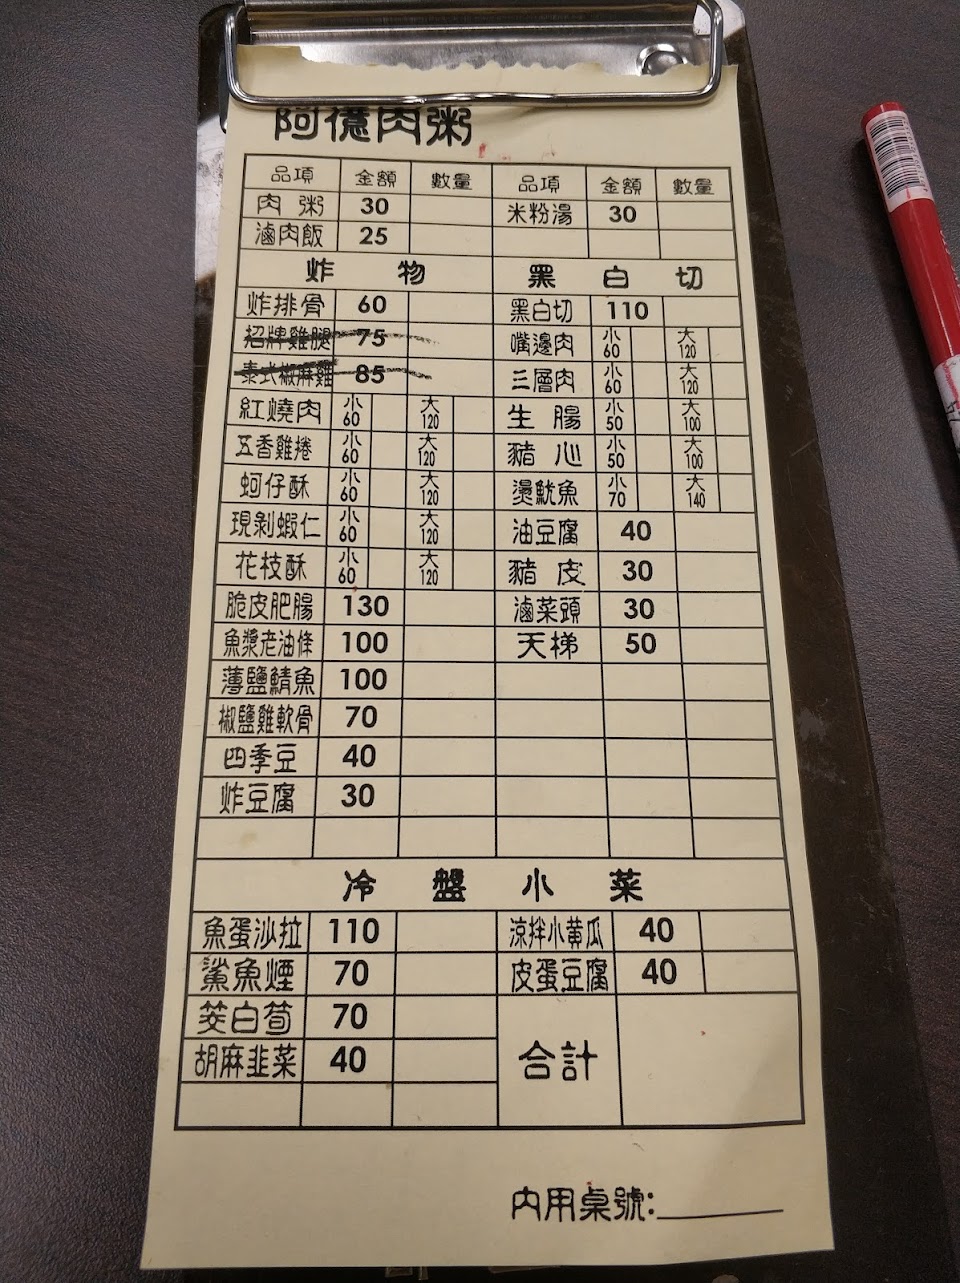 阿億肉粥
品項 金額 數量 品項 金額 數量
肉粥 30 米粉湯 30
滷肉飯 25
炸物 黑白切
炸排骨 60 黑白切 110
招牌雞腿 75 嘴邊肉 小60 大120
泰式椒麻雞 85 三層肉 小60 大120
紅燒肉 小60 大120 生腸 小50 大100
五香雞捲 小60 大120 豬心 小50 大100
蚵仔酥 小60 大120 燙魷魚 小70 大140
現剝蝦仁 小60 大120 油豆腐 40
花枝酥 小60 大120 豬皮 30
脆皮肥腸 130 滷菜頭 30
魚漿老油條 100 天梯 50
薄鹽鯖魚 100
椒鹽雞軟骨 70
四季豆 40
炸豆腐 30
冷盤小菜
魚蛋沙拉 110 涼拌小黃瓜 40
鯊魚煙 70 皮蛋豆腐 40
茭白筍 70
胡麻韭菜 40 合計
內用桌號: